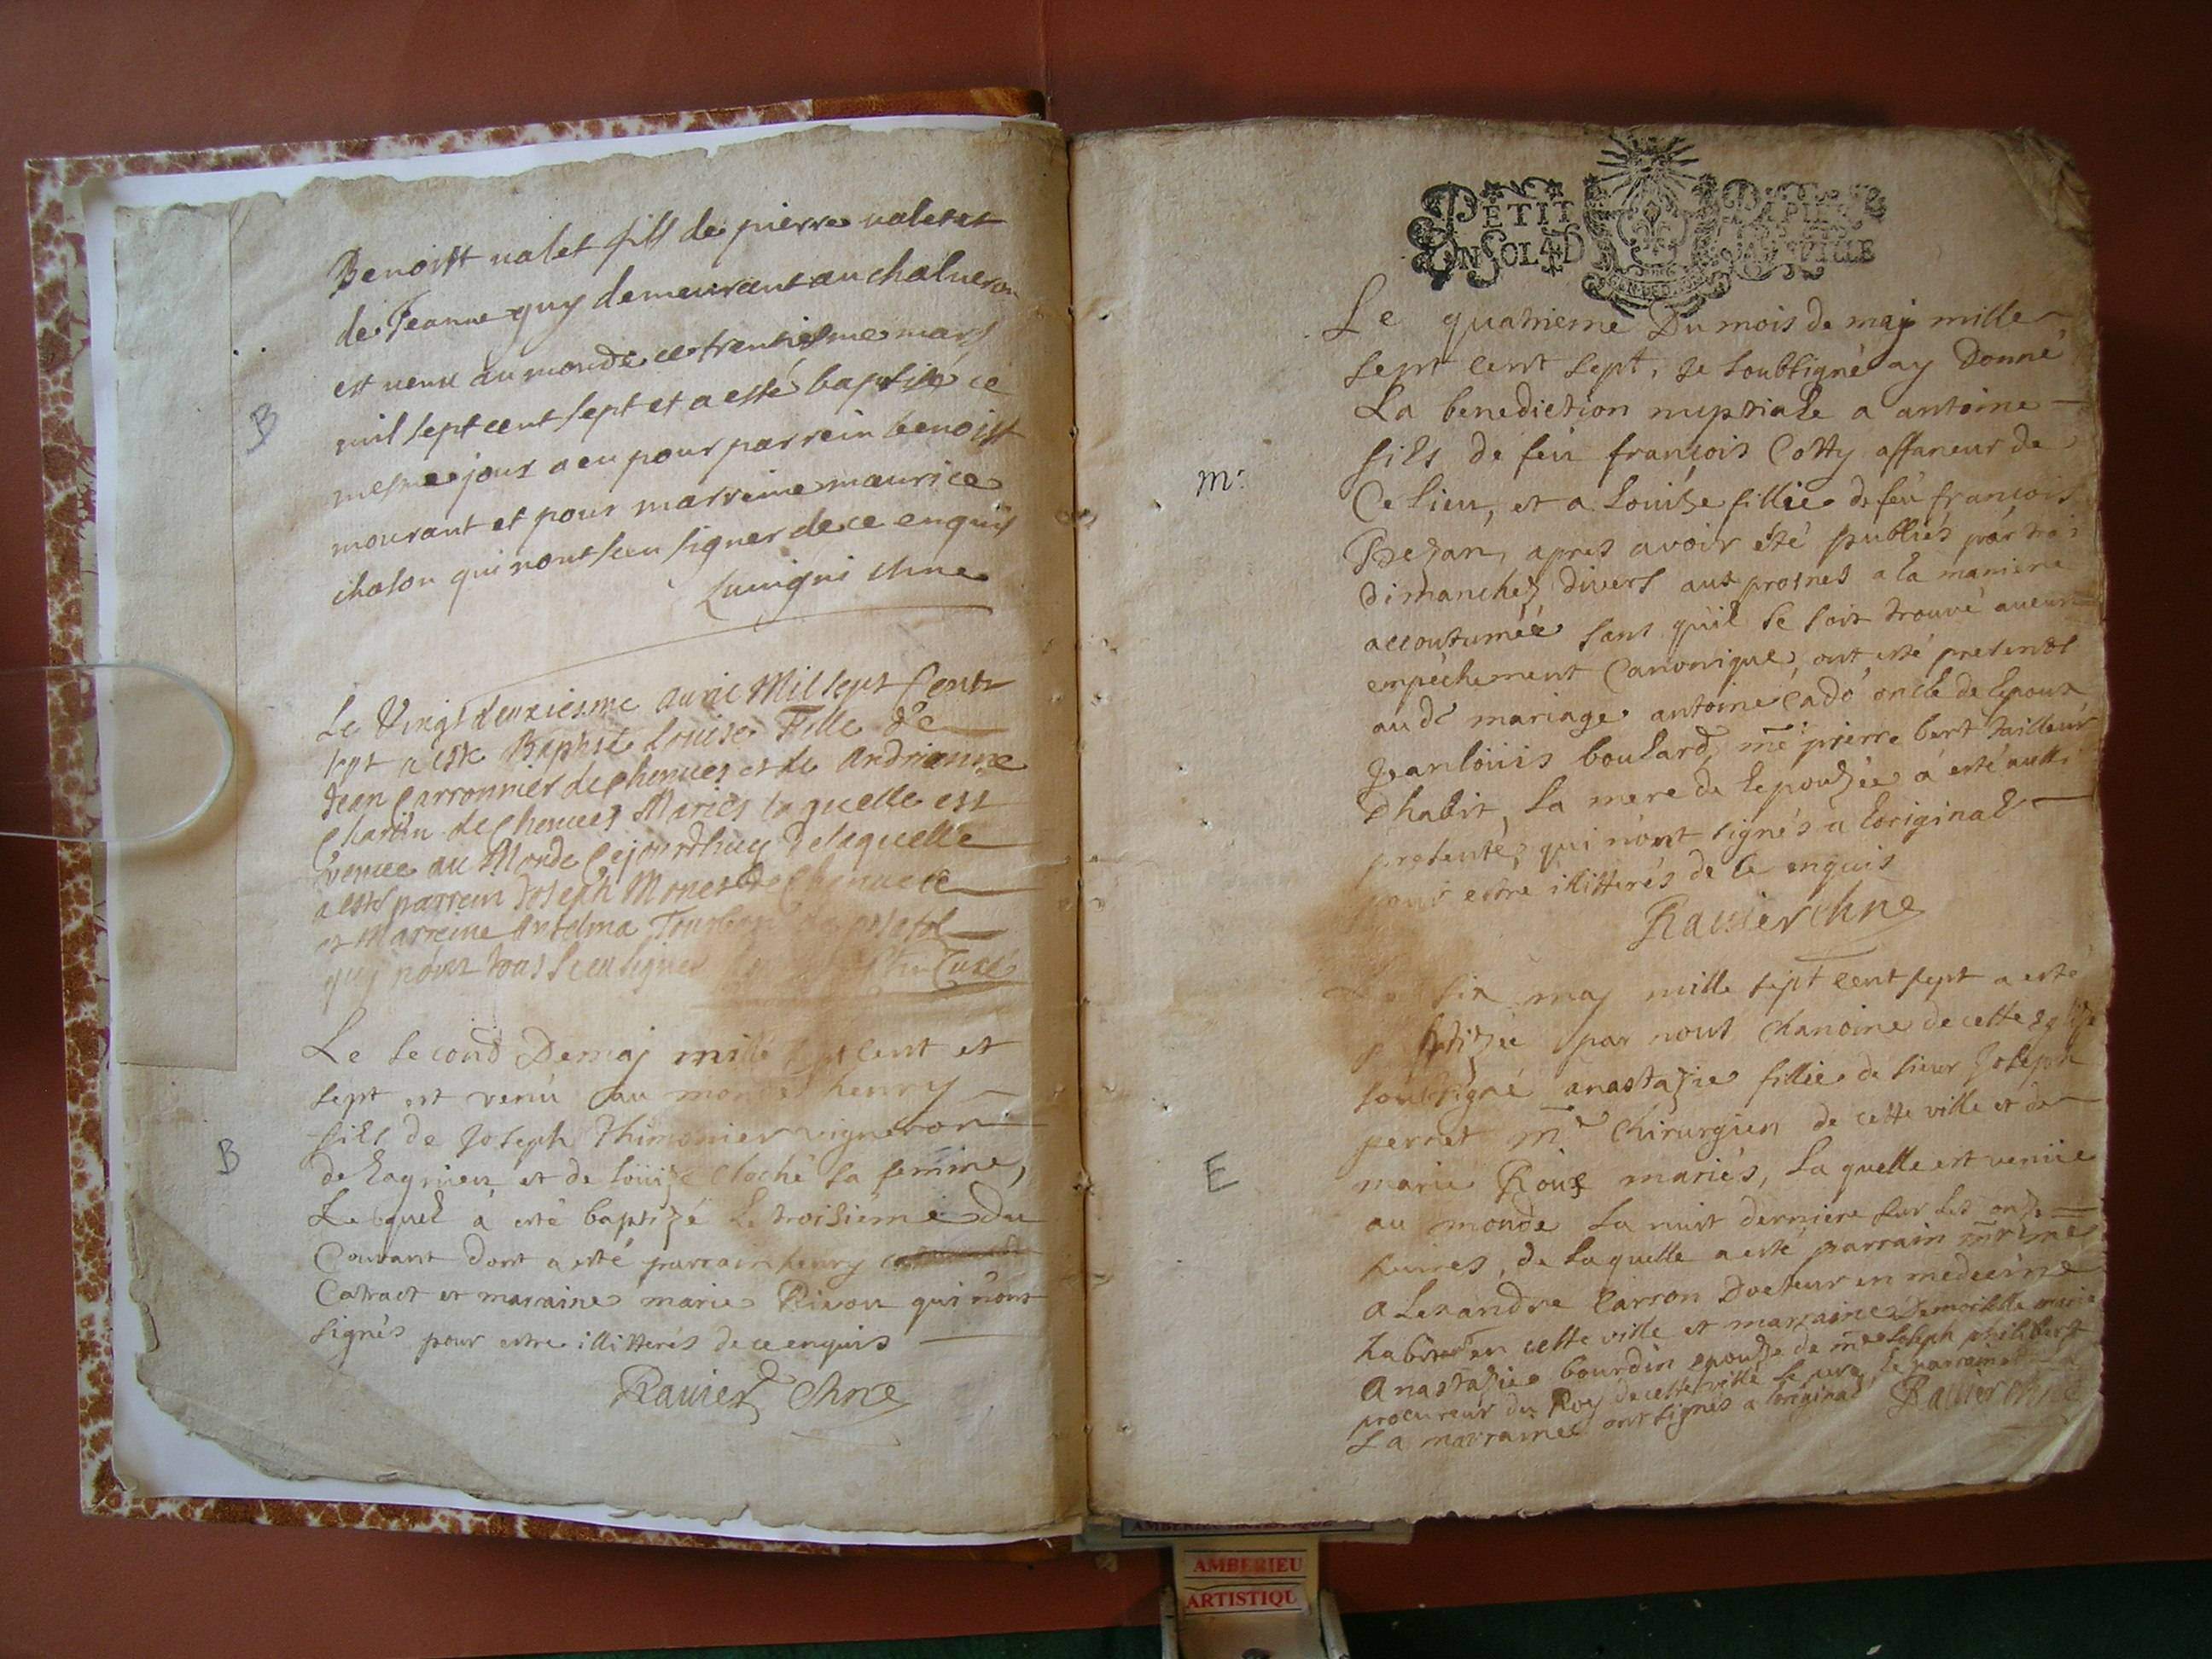 B
Benoist valet fils de pierre valet et
de Jeanne guy demeurant au chalueron
est venu au monde ce trentiesme mars
mil sept cent sept et a esté baptisé ce
mesme jour a eu pour parrein benoist
mourant et pour marreine maurice
chalon qui nont sceu signer de ce enquis
chne
Le Vingt deuxiesme avril Mil sept Cent
sept a esté Baptisé Louise Fille de
Jean Carronnier de Chenues et de Andrienne
Charlin de Chenues Mariés laquelle est
venue au Monde Cejourdhuy De laquelle
a esté parrein Joseph Monet de Chenues
et Marreine Antelma
quy n'ont tous sceu signer Curé
B
Le second De maj mille sept cent et
sept est venu au monde henry
fils de Joseph Thimonier vigneron
de Lagnieu et de Loüize cloché sa femme,
Lequel a esté baptizé le troisieme du
Courant dont a esté parrain henry
Catract et marraine marie Rivon qui n'ont
signés pour estre illitterés de ce enquis
Ravier Chne
PETIT PAPIER
UN SOL 4 D LA FEUILLE
m.
Le quatrieme Du mois de maj mille
sept cent sept, je soubsigné ay Donné
La benediction nuptiale a antoine
fils de feu françois Cotty affaneur de
Ce lieu, et a Louise fillie de feu françois
Bezan, apres avoir été publiés par trois
dimanches divers aux prosnes a la maniere
accoutumée sans qu'il se soit trouvé aucun
empêchement Canonique, ont esté presents
aud mariage antoine Cado oncle de Lepoux
Jeanloüis boulard, me pierre bert tailleur
Dhabit, la mere de Lepouzée a esté aussi
presente, qui n'ont signés a Loriginal
pour estre illitterés de ce enquis
Ravier chne
E
six may mille sept cent sept a esté
par nous chanoine de cette Eglise
soubsigné anastazie fillie de sieur Joseph
perret me Chirurgien de cette ville et de
marie Roux mariés, Laquelle est venüe
au monde la nuit derniere sur les onze
heures, de laquelle a esté parrain
Alexandre Carron Docteur en medecine
habitant en cette ville et marraine Demoiselle marie
Anastazie bourdin epouze de me Joseph philibert
procureur du Roy de cette ville le pere, le parrain et
La marraine ont signés a loriginal Ravier chne
AMBERIEU
ARTISTIQU